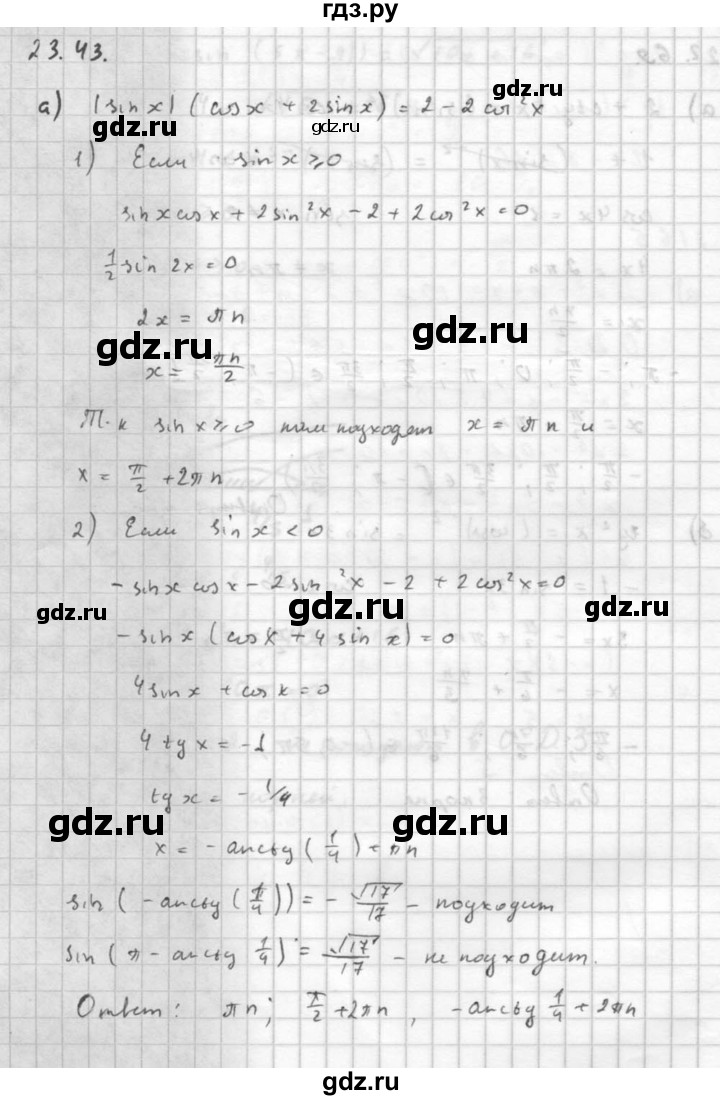 гдз.ру
23.43.
а) |sin x| (cos x + 2 sin x) = 2 - 2 cos²x
gdz.ru gdz.ru
1) Если sin x ≥ 0
sin x cos x + 2 sin²x - 2 + 2 cos²x = 0
½ sin 2x = 0
2x = πn
gdz.ru gdz.ru
x = πn/2
Т.к sin x ≥ 0 нам подходят x = πn и
x = π/2 + 2πn
2) Если sin x < 0
- sin x cos x - 2 sin²x - 2 + 2 cos²x = 0
gdz.ru gdz.ru gdz.ru
- sin x (cos x + 4 sin x) = 0
4 sin x + cos x = 0
4 tg x = -1
tg x = - 1/4
gdz.ru gdz.ru
x = - arctg (1/4) + πn
sin (- arctg (1/4)) = - √17/17 - подходит
sin (π - arctg 1/4) = √17/17 - не подходит.
Ответ: πn; π/2 + 2πn, - arctg 1/4 + 2πn
gdz.ru